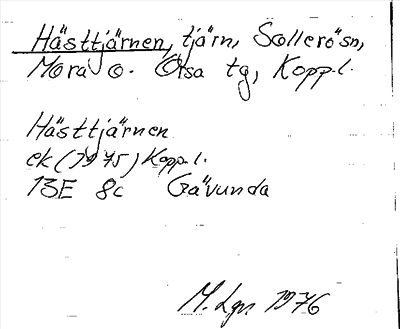 Hästtjärnen, tjärn, Sollerösn,
Mora o. Orsa tg, Kopp.l.
Hästtjärnen
ek (1975) Kopp.l.
13E 8c Gävunda
M. Lgn 1976